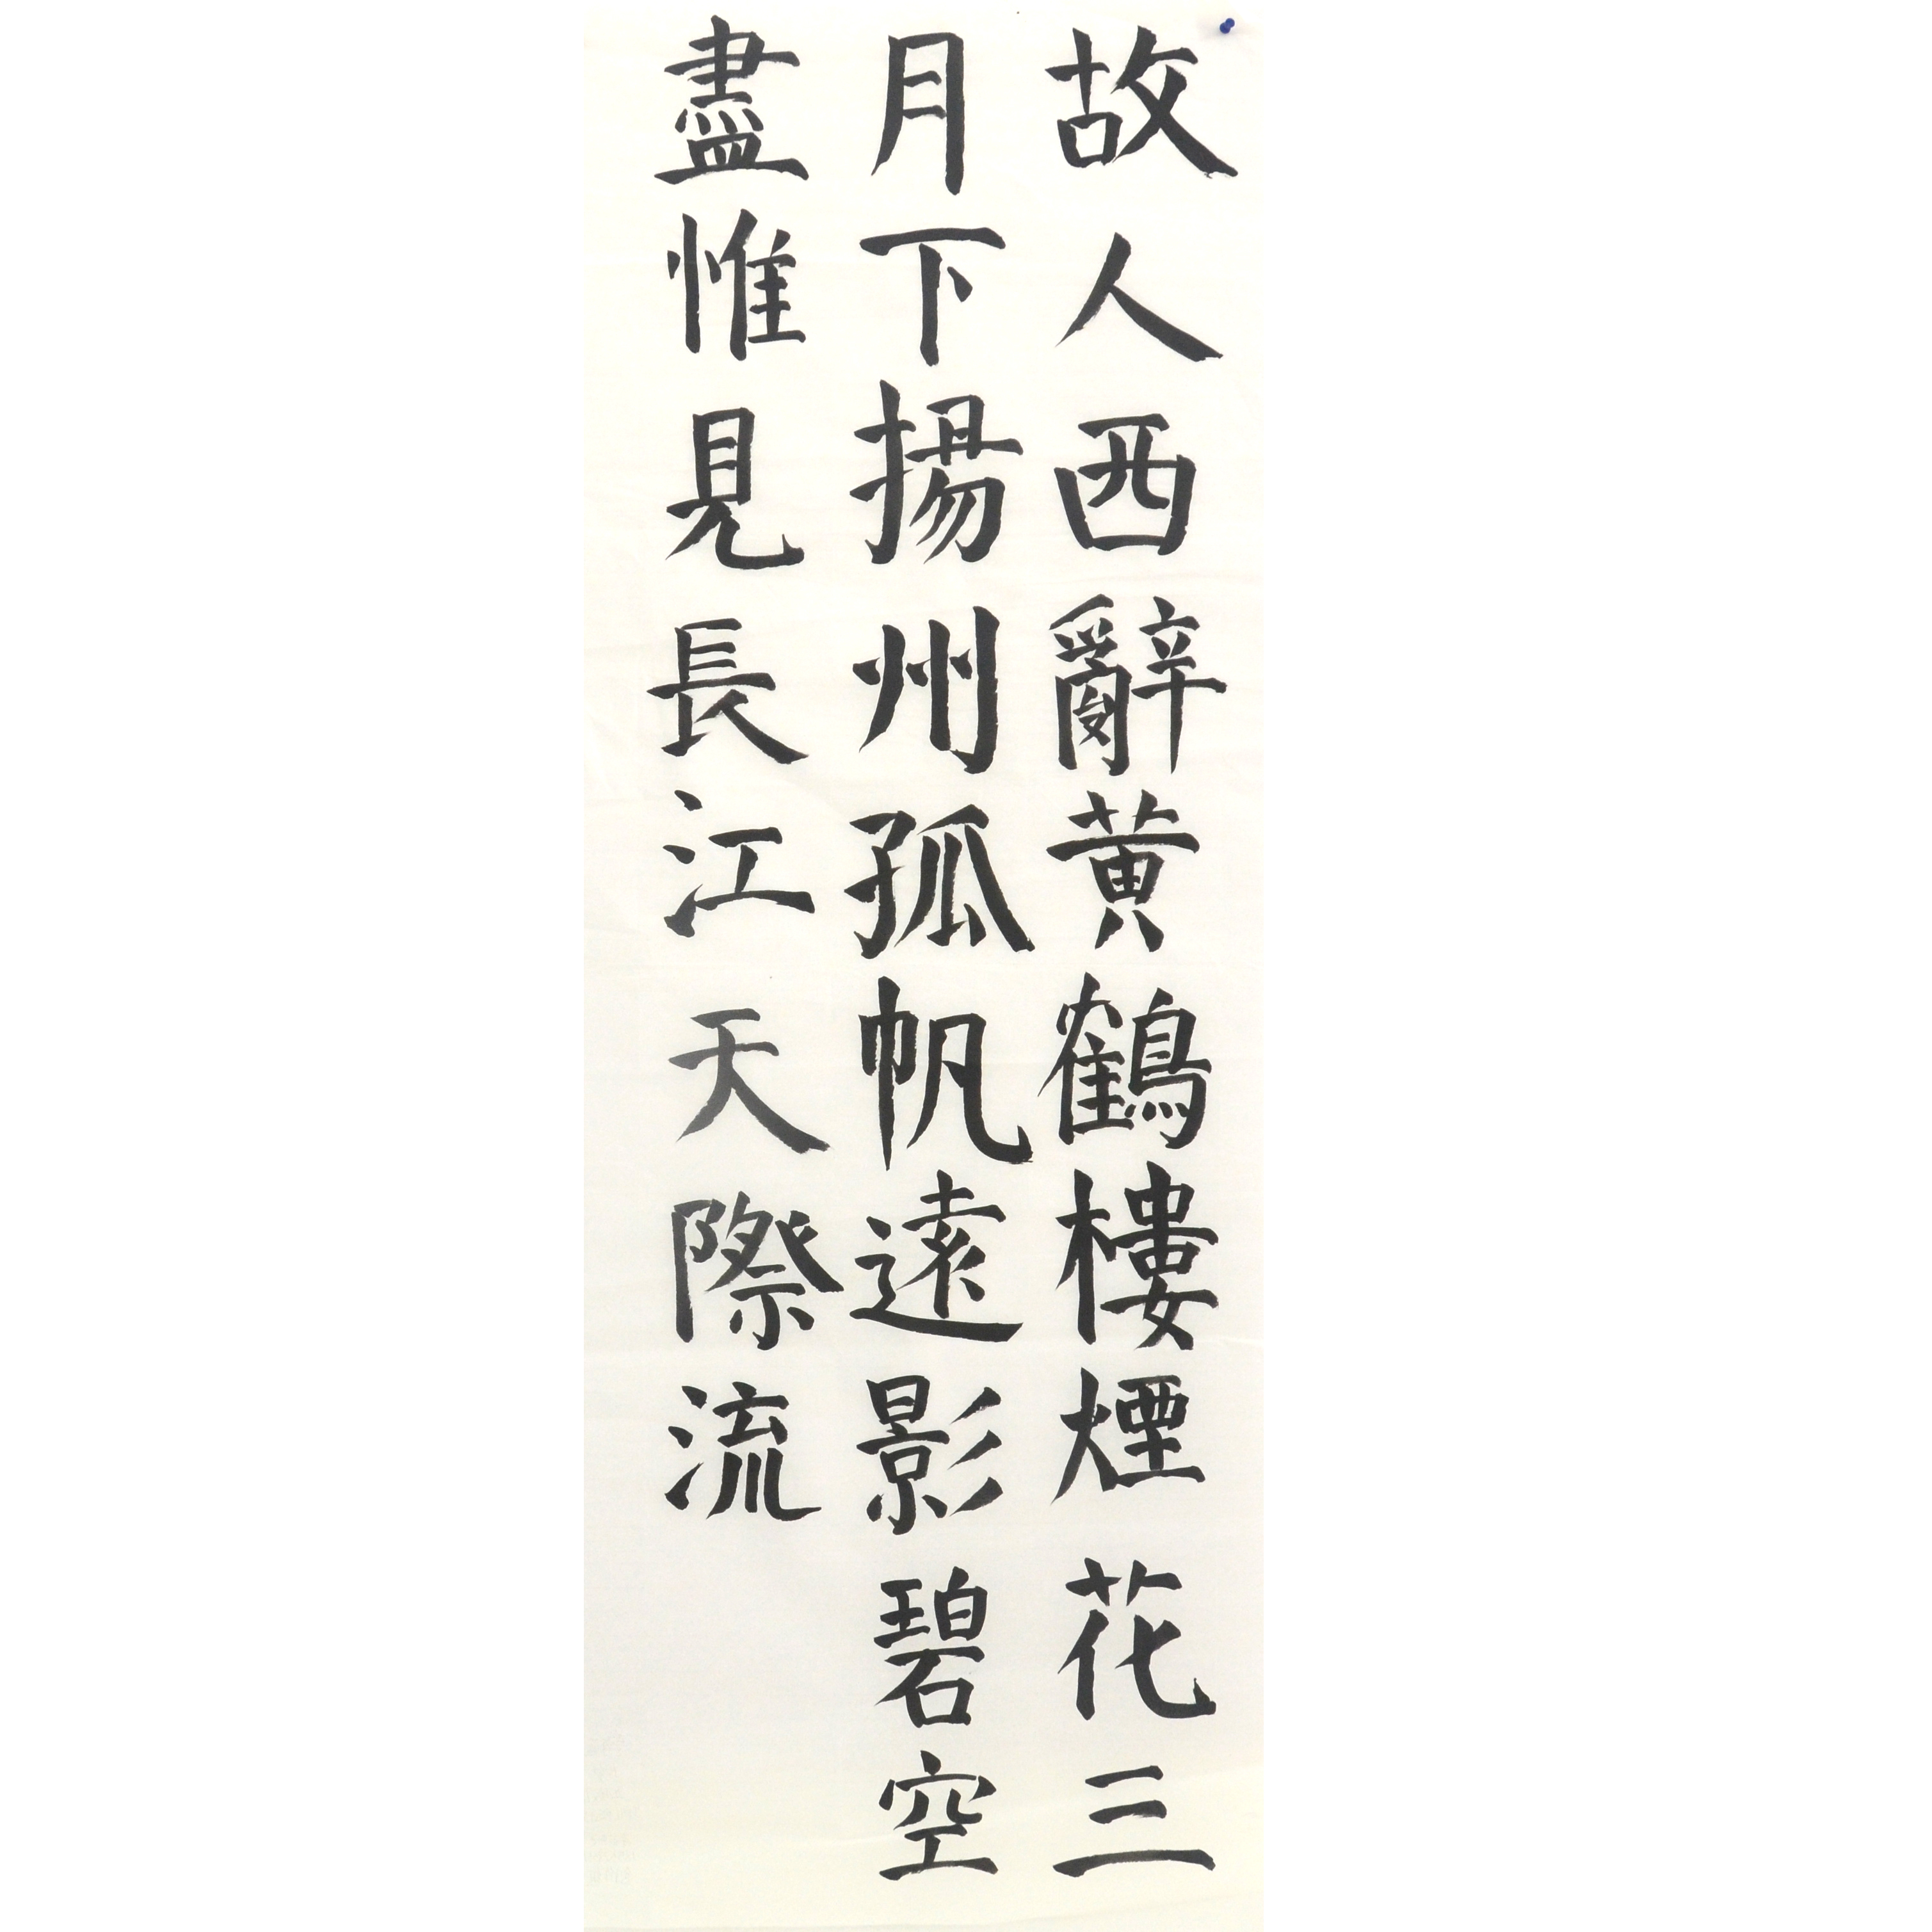 故人西辭黃鶴樓煙花三
月下揚州孤帆遠影碧空
盡惟見長江天際流